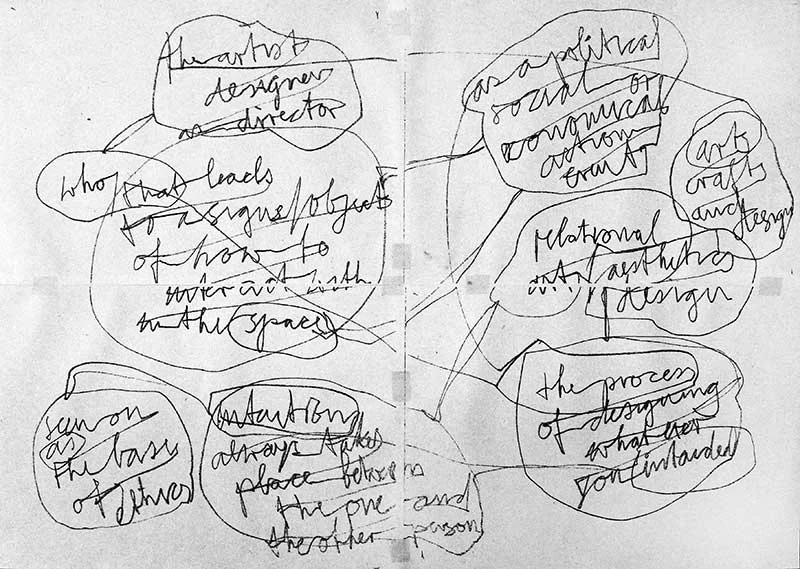 the artist
designer
as director
as a political
social or
economical
action
event
arts
crafts
and design
who
that leads
to a signe/object
of how to
interact with
in the space
relational
art/aesthetics
design
the process
of designing
what ever
you intended
as
the basis
of
always takes
place between
the one and
the other person